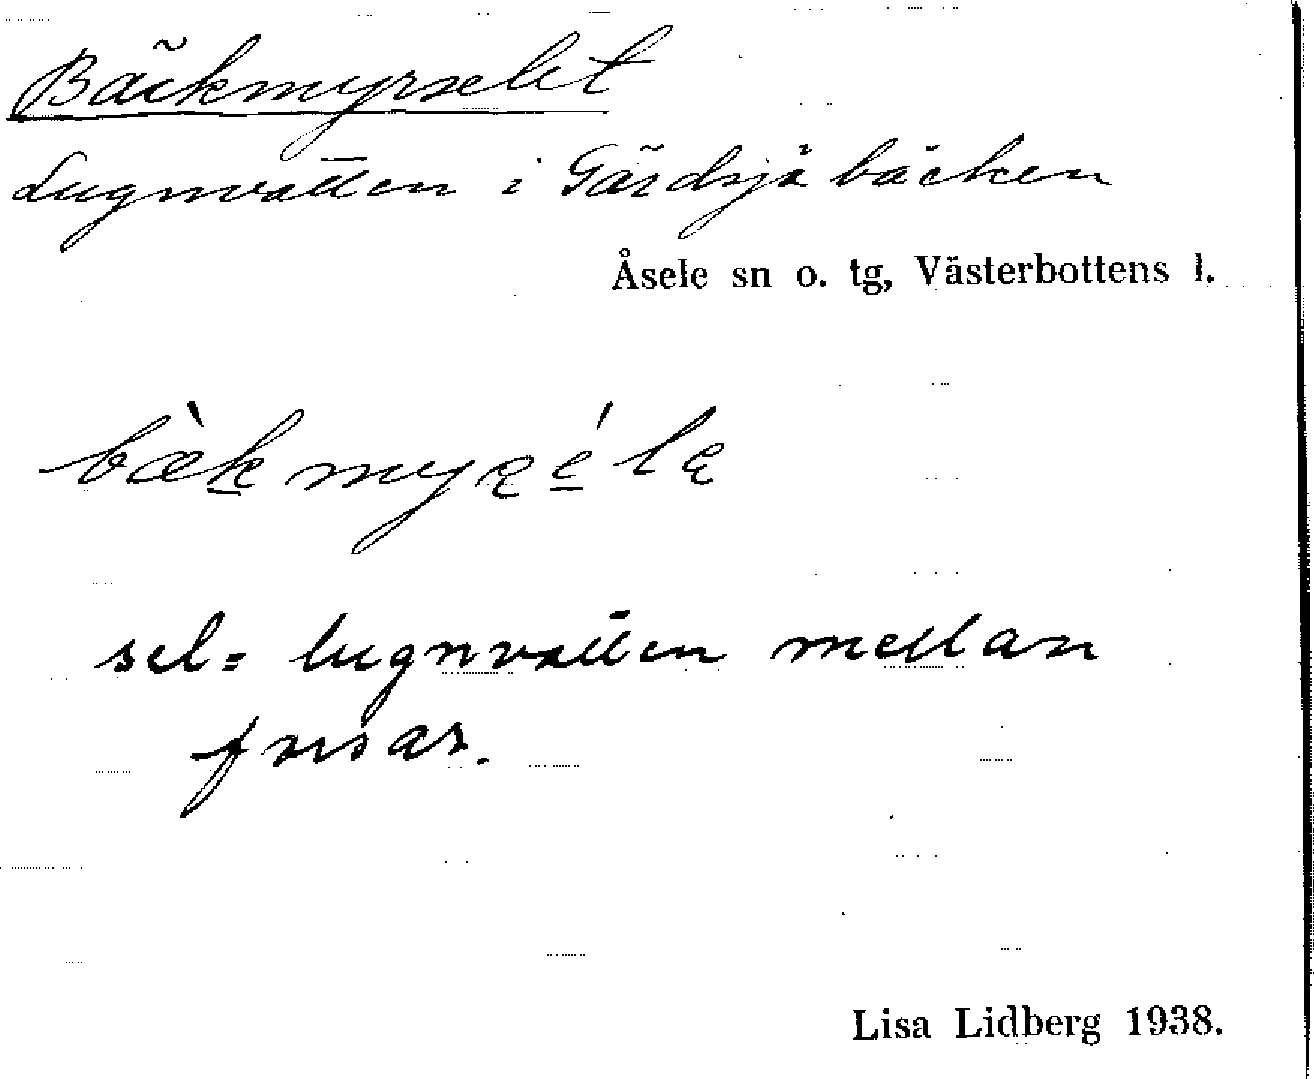 Bäckmyrselet
Lugnvatten i Gärdsjöbäcken
Åsele sn o. tg, Västerbottens l.
bæ̀k myʀéle
sel = lugnvatten mellan
forsar.
Lisa Lidberg 1938.